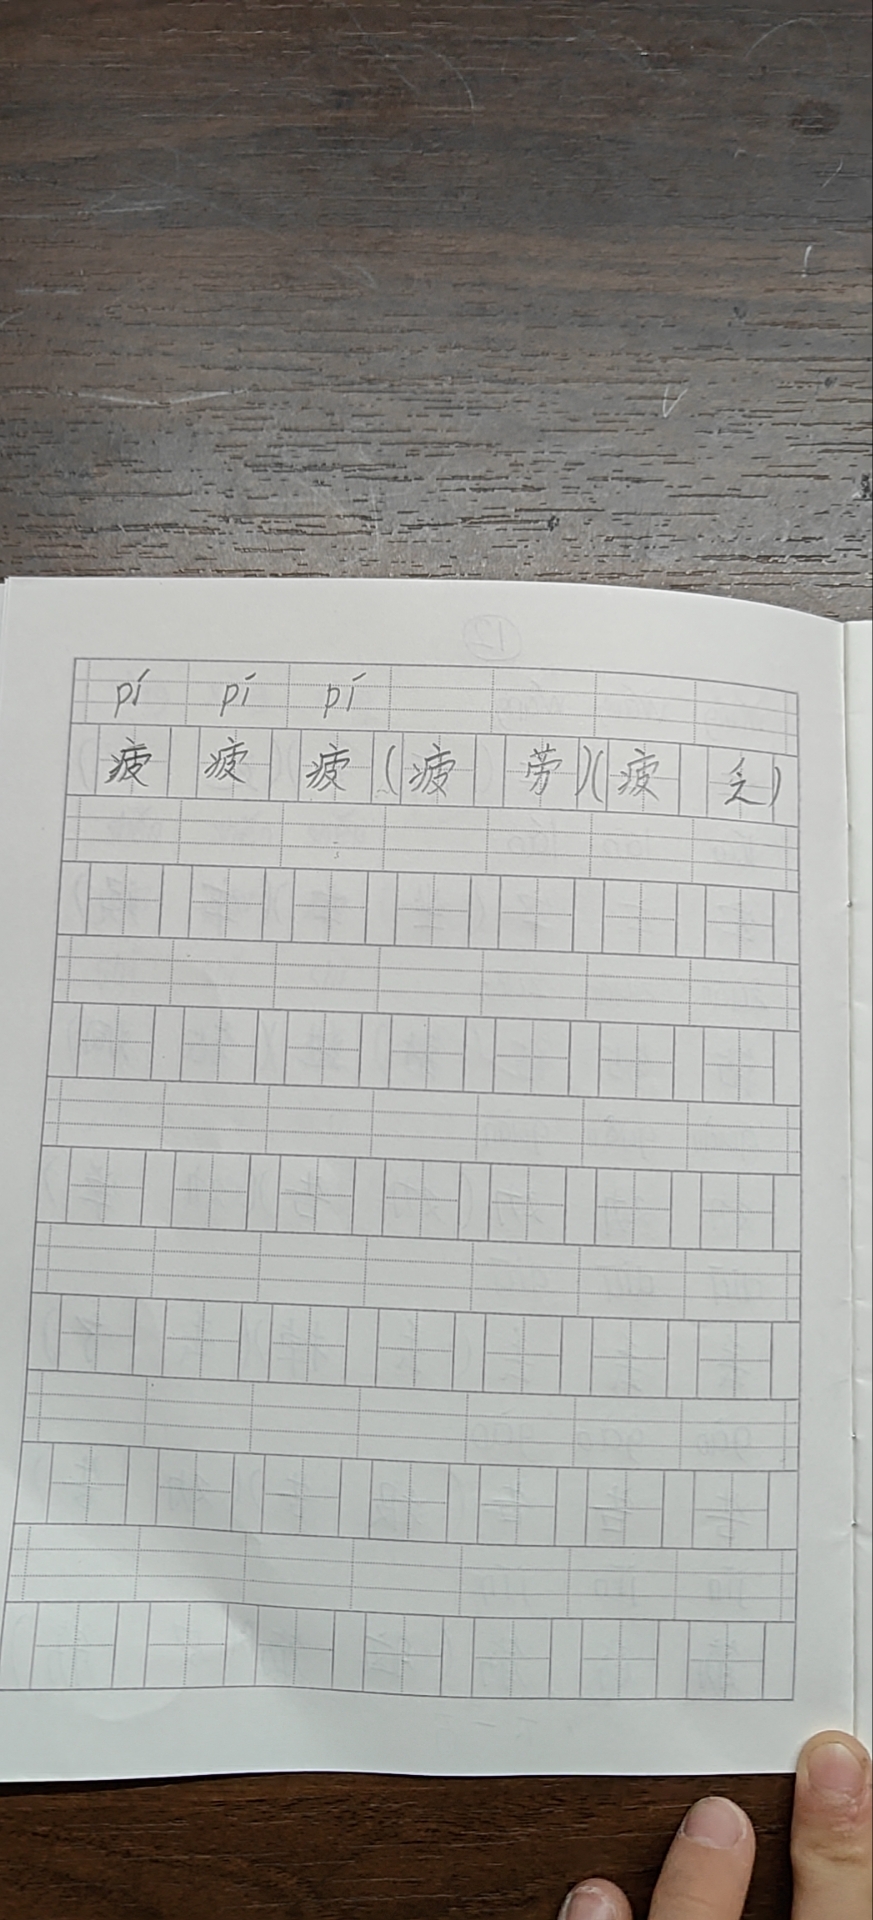 pí pí pí
疲 疲 疲 (疲 劳)(疲 乏)